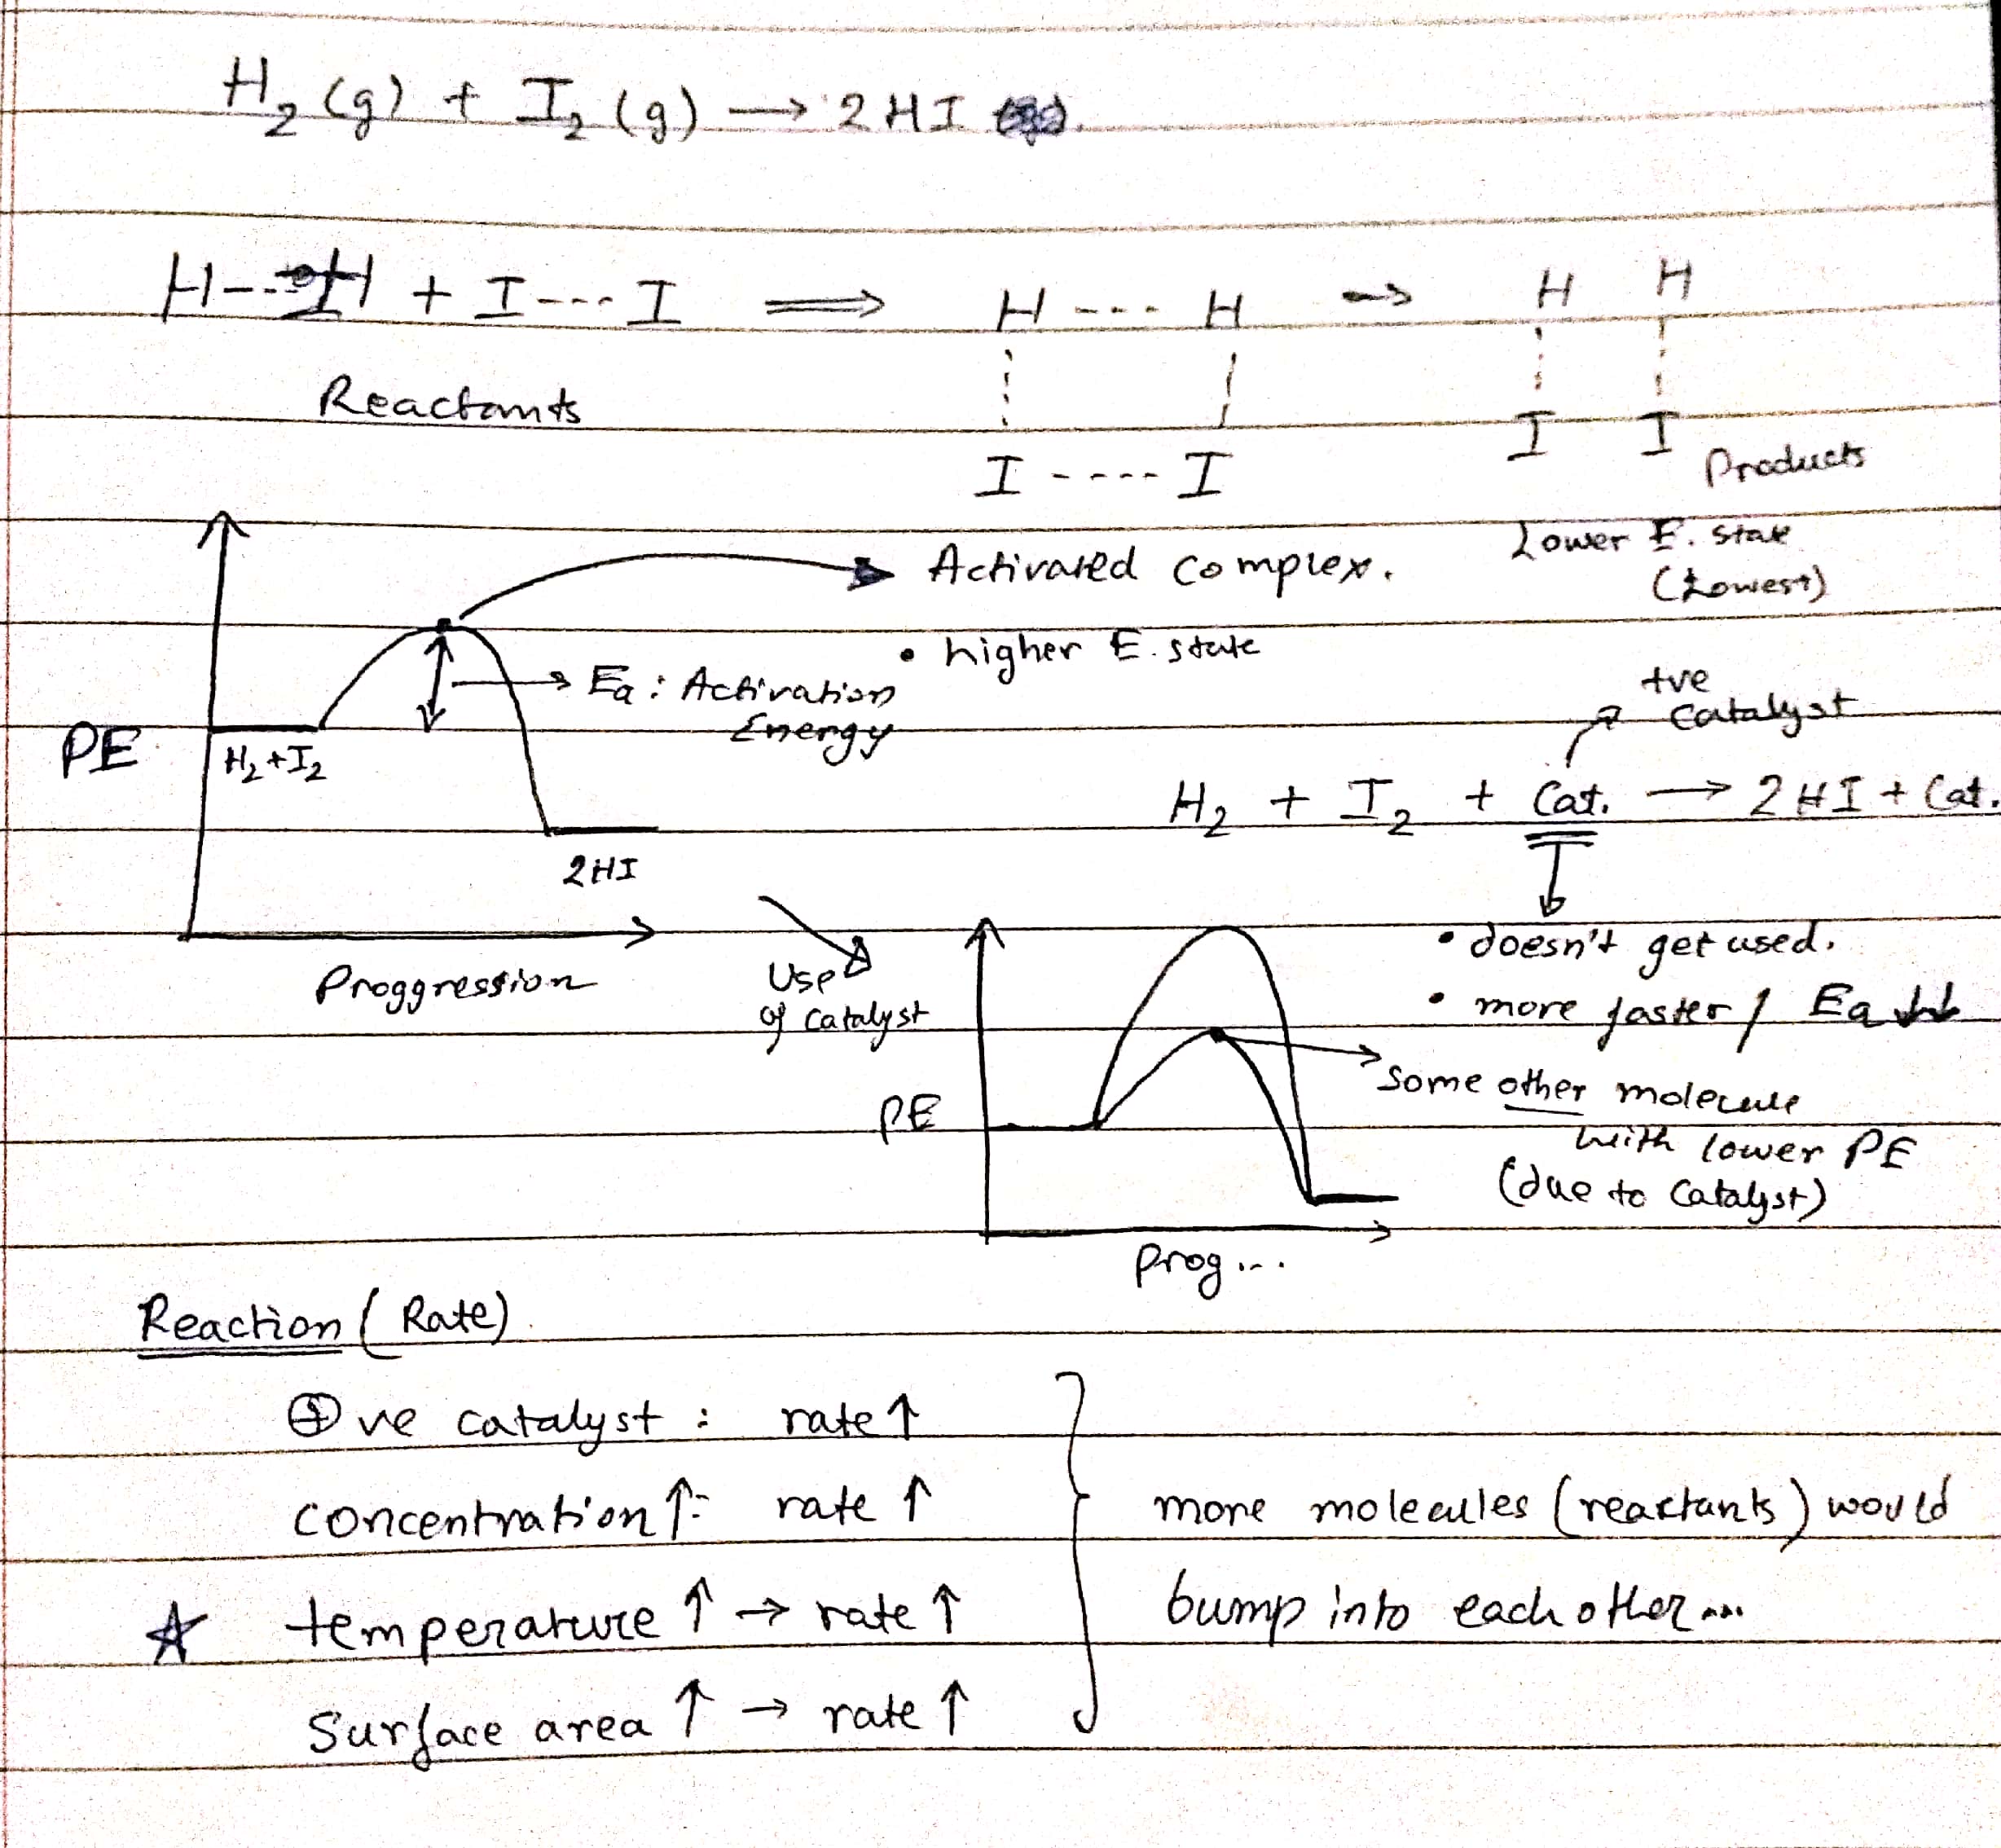 H₂ (g) + I₂ (g) → 2HI
H---H + I---I ⟹ H ---- H → H H
Reactants
I ----- I
I I
Products
Lower E. state
(Lowest)
Activated Complex.
• higher E. state
Ea : Activation
Energy
PE
H₂+I₂
2HI
Proggression
+ve
catalyst
H₂ + I₂ + Cat. → 2HI + Cat.
Use
of catalyst
• doesn't get used.
• more faster / Ea ↓↓
Some other molecule
with lower PE
(due to Catalyst)
PE
Prog...
Reaction (Rate)
⊕ve catalyst : rate ↑
concentration ↑: rate ↑
☆ temperature ↑ → rate ↑
Surface area ↑ → rate ↑
more molecules (reactants) would
bump into each other...